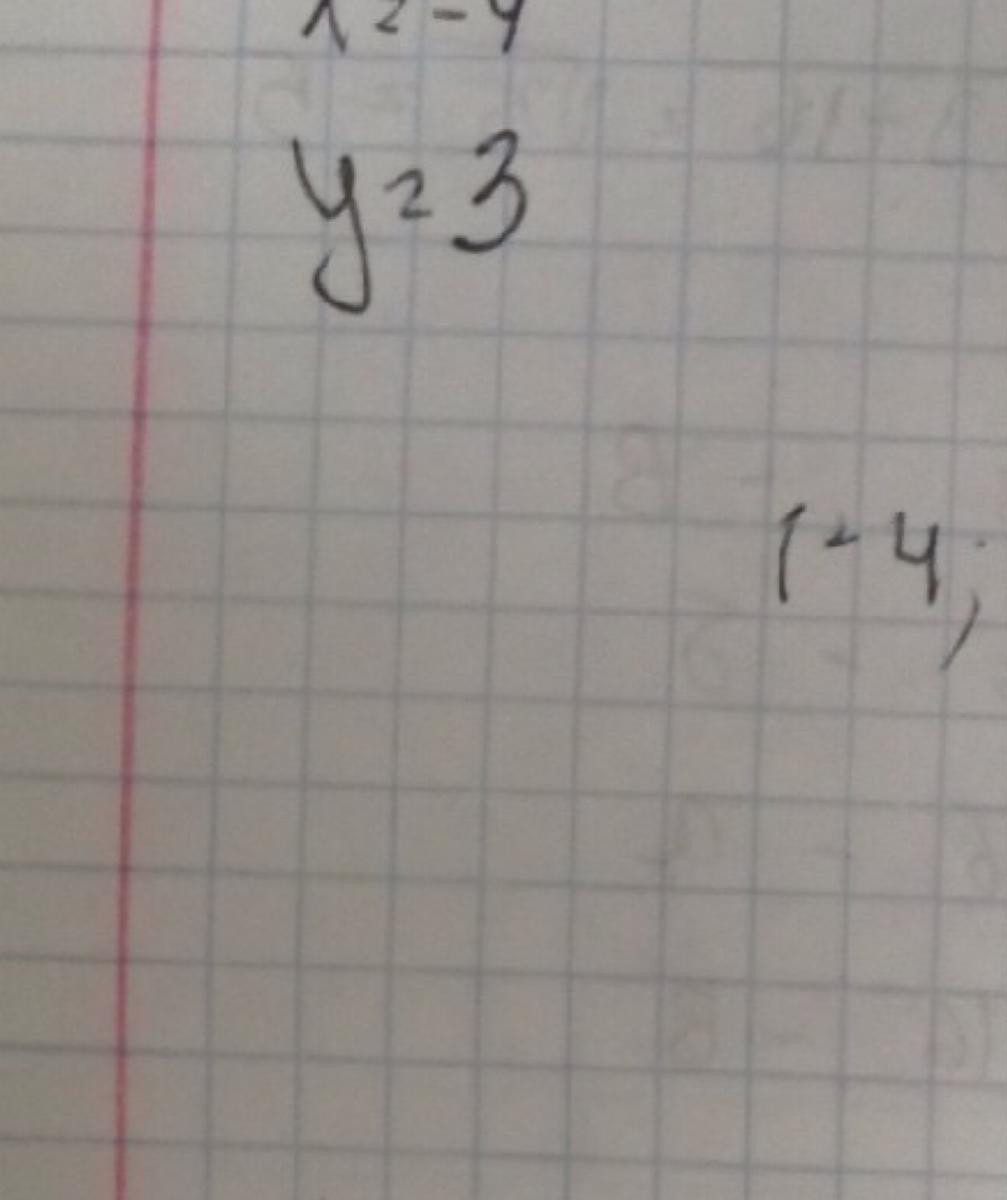 x = -4
y = 3
(-4;